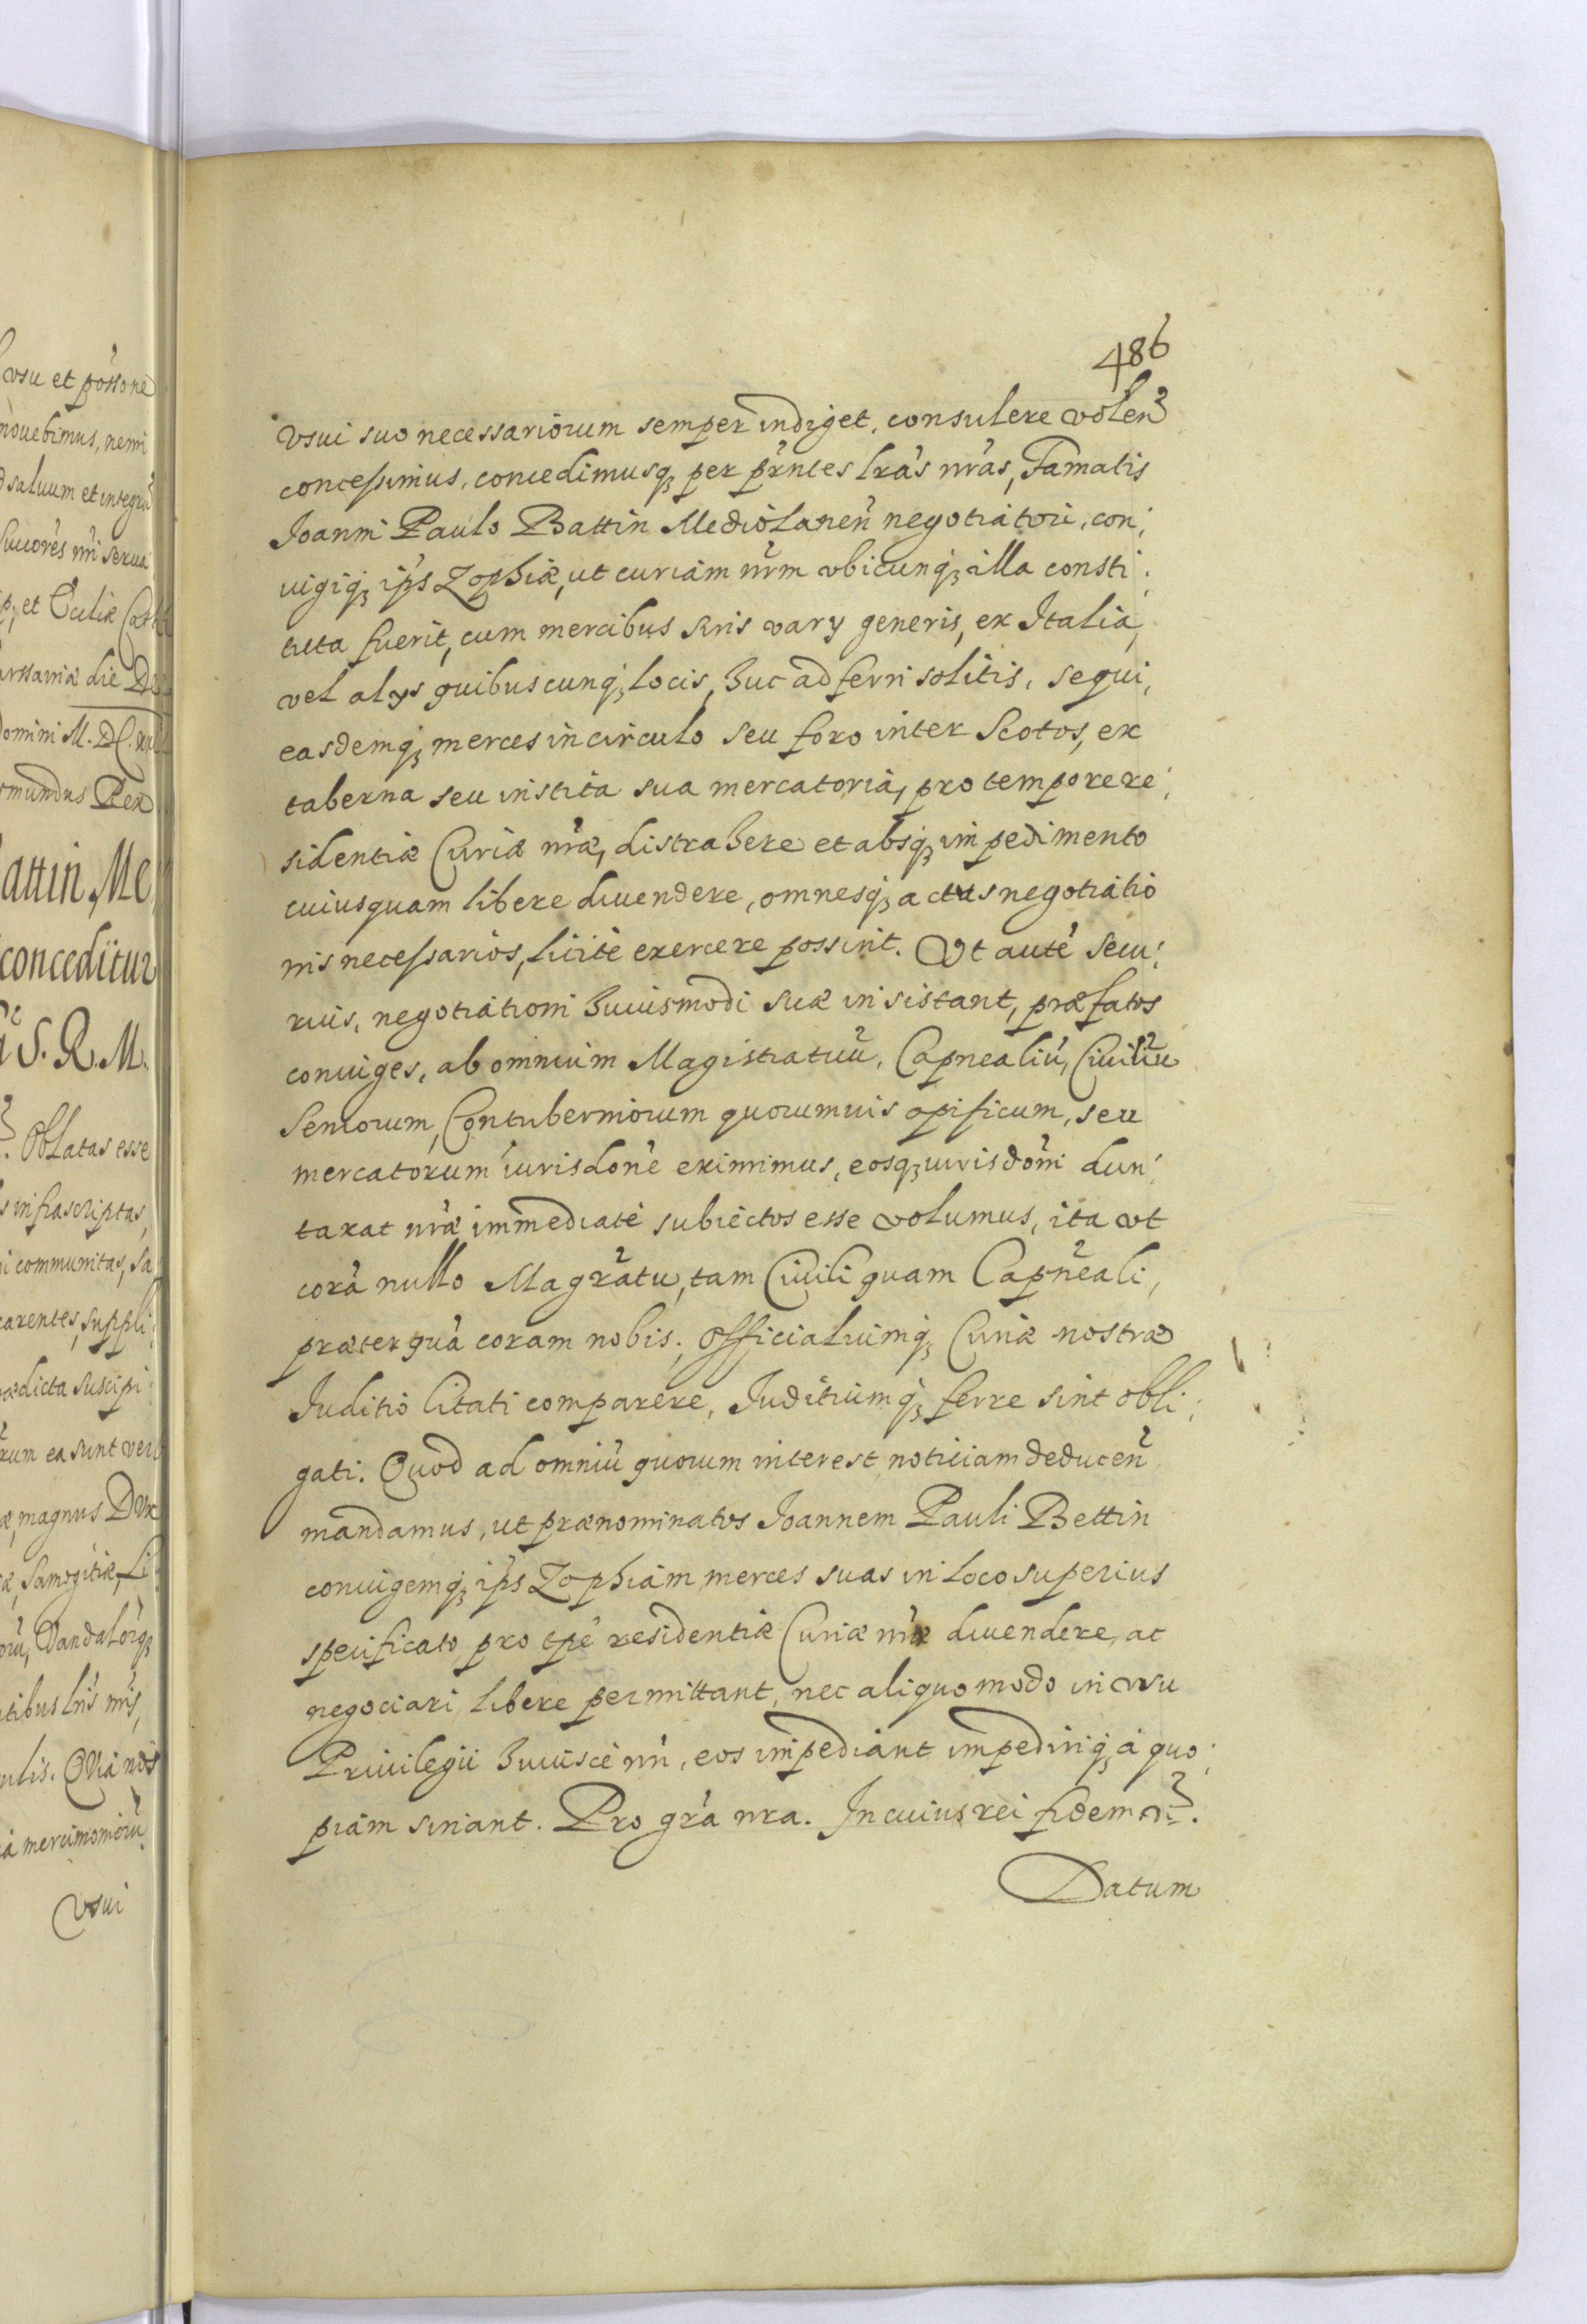 usu et pōssone
mouebimus, nemi
saluum et integrū
Succōres nr̄i serua
et Ecclīæ
arssaviæ die
Domini M. DC.
smundus Rex
attin Me
conceditur
S. R. M.
Oblatas esse
infrascriptas,
communitas, sa
carentes, suppli:
ædicta suscipi:
rum ea sunt ver
æ, magnus Dux
æ, Samogitiæ, Li
Vandalorq̃
tibus lr̄is nr̄is,
Quia nos
mercimoniorū
Vsui
486
Vsui suo necessariorum semper indiget, consulere volen̄
concessimus, concedimusq̃ per pr̄ntes lrās nr̄as, Famatis
Joanni Paulo Battin Mediolanen̄ negotiatori, con:
iugiq̃ ip̄s Zophiæ, ut curiam nr̄m ubicunq̃ illa consti:
tuta fuerit, cum mercibus suis varÿ generis, ex Italia,
vel alÿs quibuscunq̃ locis, huc adferri solitis, sequi,
easdemq̃ merces in circulo seu foro inter Scotos, ex
taberna seu instita sua mercatoria, pro tempore re:
sidentiæ Curiæ nr̄æ, distrahere et absq̃ impedimento
cuiusquam libere diuendere, omnesq̃ actus negotiatio
nis necessarios, licitè exercere possint. Ut autē secu:
rius, negotiationi huiusmodi suæ insistant, præfatos
coniuges, ab omnium Magistratuū, Capnealiū, Ciuiliū
Seniorum, Contuberniorum quorumuis opificum, seu
mercatorum iurisdōnē eximimus, eosq̃ iurisdōni dun:
taxat nr̄æ immediatè subiectos esse volumus, ita ut
corā nullo Magr̄atu, tam Ciuili quam Capn̄eali,
præterquā coram nobis, Officialiumq̃ Curiæ nostræ
Juditio Citati comparere, Juditiumq̃ ferre sint obli:
gati. Quod ad omniū quorum interest noticiam deducen̄
mandamus, ut prænominatos Joannem Pauli Bettin
coniugemq̃ ip̄s Zophiam merces suas in loco superius
specificato pro tp̄e residentiæ Curiæ nr̄æ diuendere, ac
negociari libere permittant, nec aliquo modo in usu
Priuilegii huiuscè nr̄i, eos impediant impediriq̃ à quo:
piam sinant. Pro gr̄a nra. In cuius rei fidem
Datum